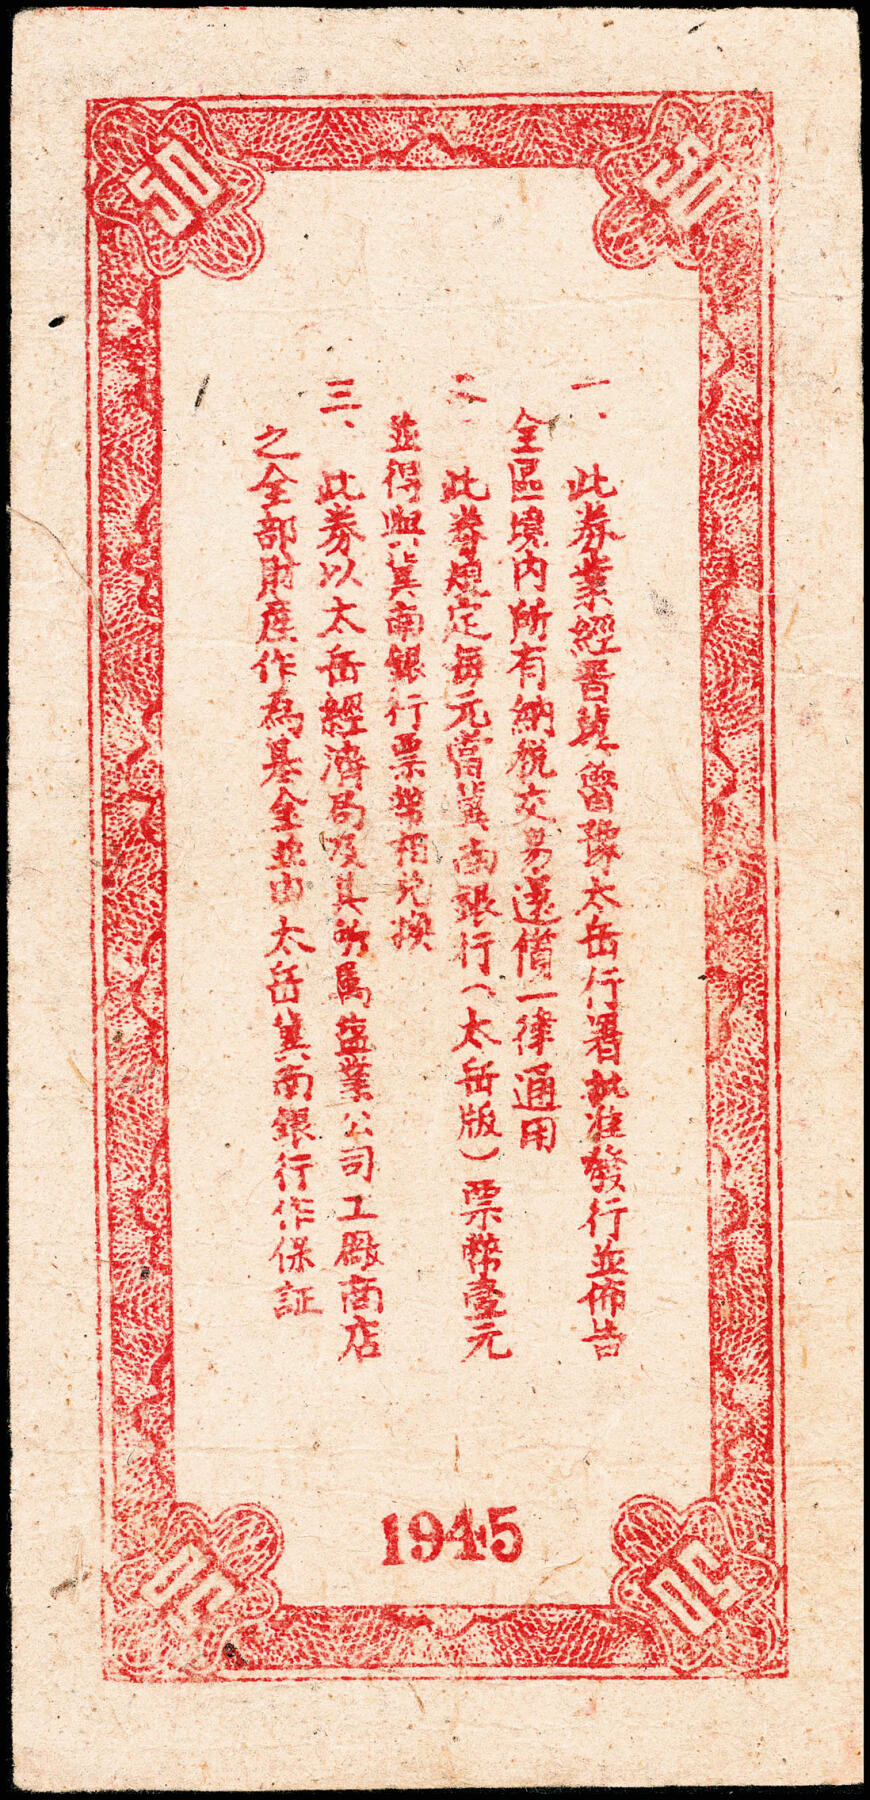 50
50
一、此券業經晋冀魯豫太岳行署批准發行並佈告
全區境內所有納税交易還債一律通用
二、此券規定每元當冀南銀行（太岳版）票幣壹元
並得與冀南銀行票幣相兑換
三、此券以太岳經濟局及其所属盐業公司工廠商店
之全部財産作為基金並由太岳冀南銀行作保証
1945
50
50